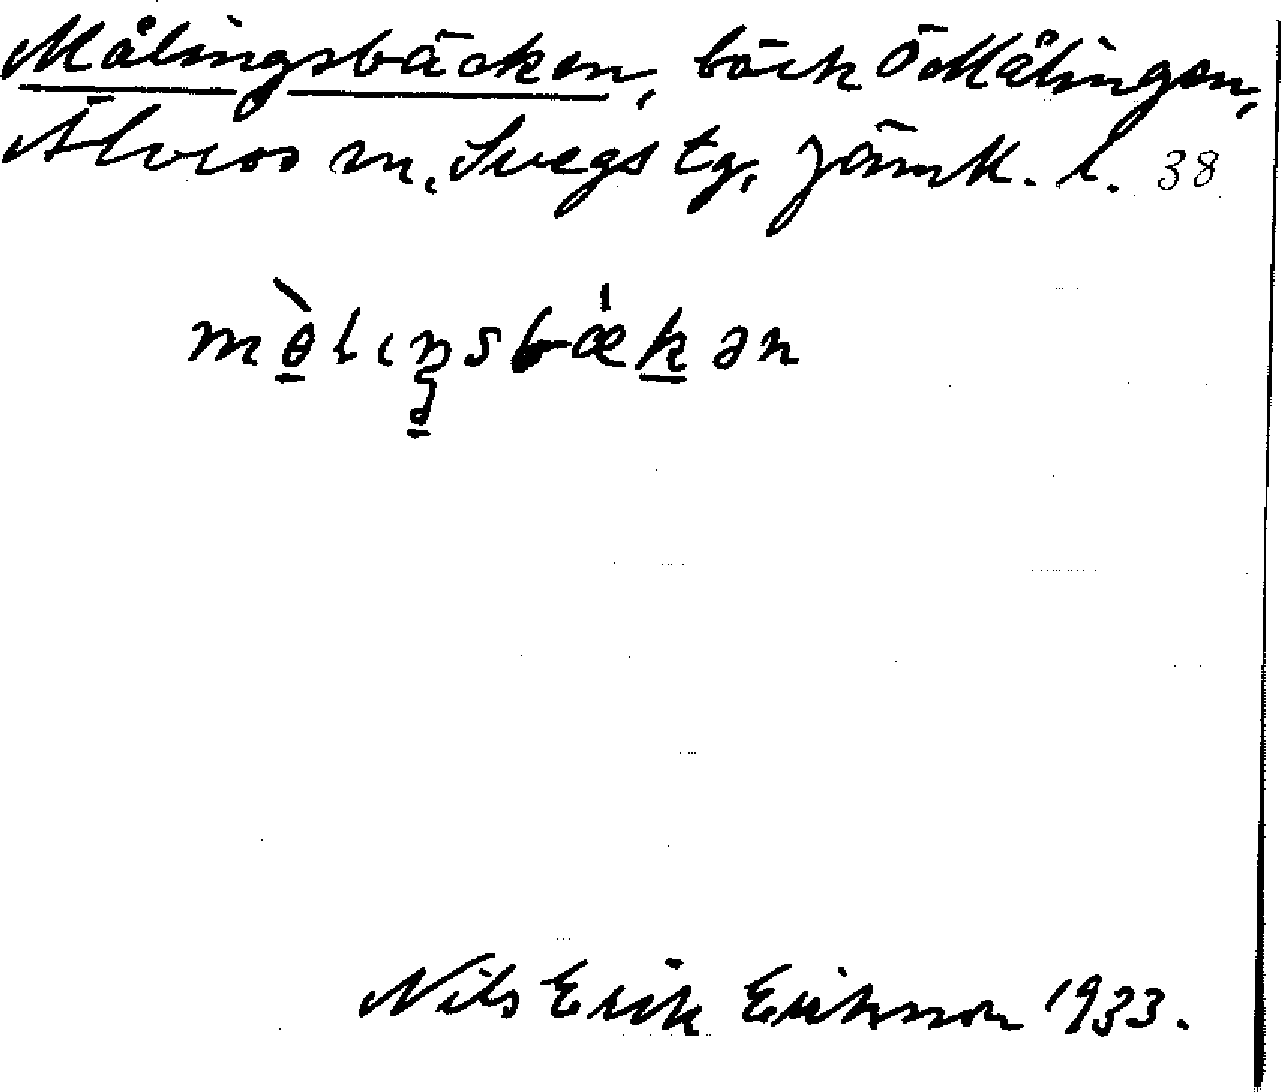 Målingsbäcken, bäck Ö Målingen,
Älvros sn. Svegs tg. Jämtl. l. 38
mɵ̀lıŋsbǽkən
Nils Erik Eriksson 1933.